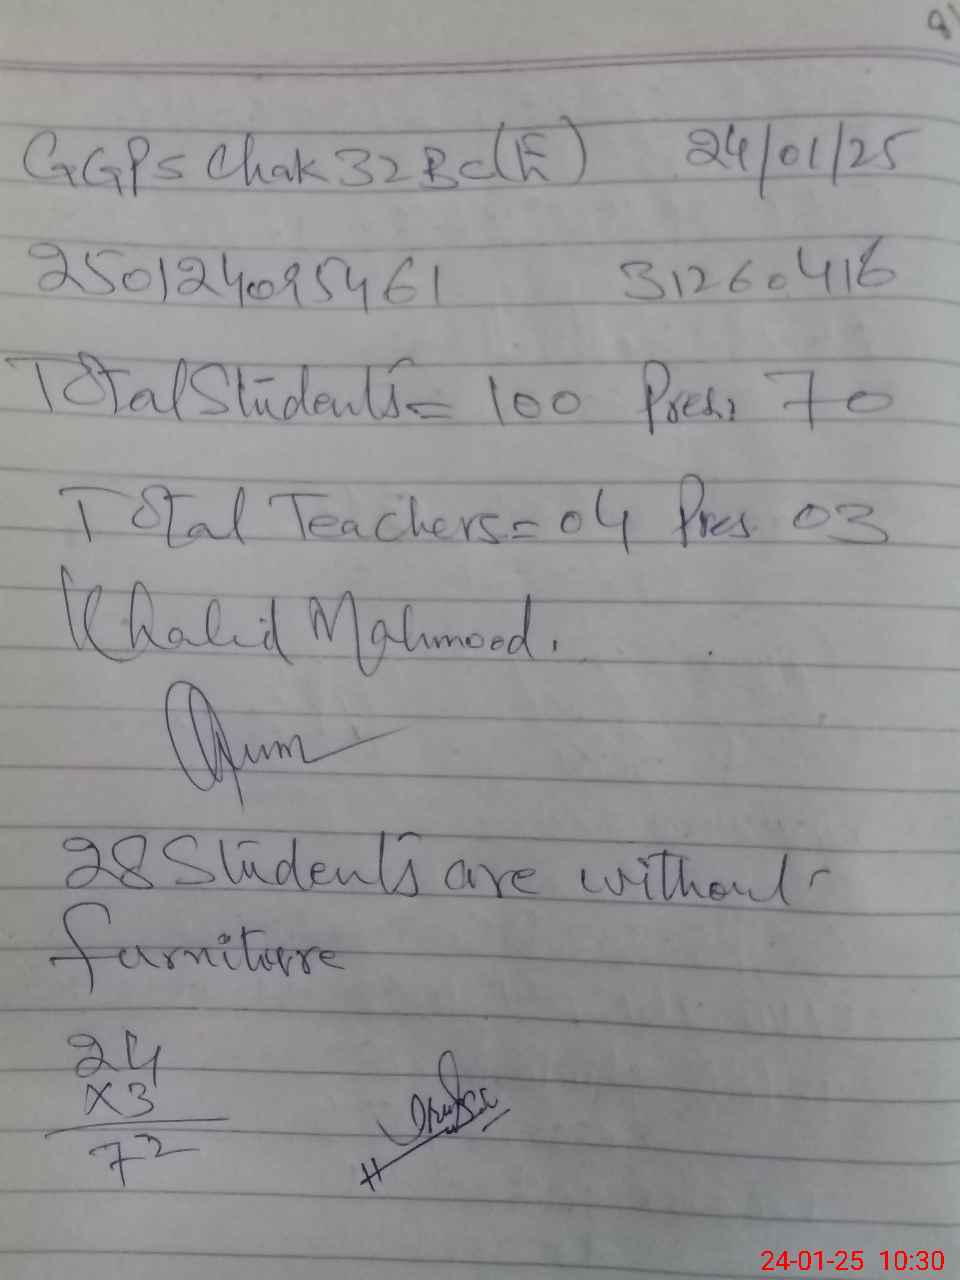 GGPS Chak 32 BC(E) 24/01/25
250124095461 31260416
Total Students = 100 Pres: 70
Total Teachers = 04 Pres. 03
Khalid Mahmood.
28 Students are without
furniture
24
x3
72
24-01-25 10:30